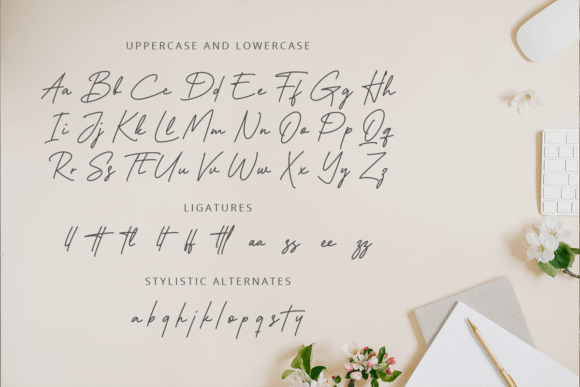 UPPERCASE AND LOWERCASE
Aa Bb Cc Dd Ee Ff Gg Hh
Ii Jj Kk Ll Mm Nn Oo Pp Qq
Rr Ss Tt Uu Vv Ww Xx Yy Zz
LIGATURES
ll tt tl lt ff ttl aa ss ee zz
STYLISTIC ALTERNATES
a b g h j k l o p q s t y